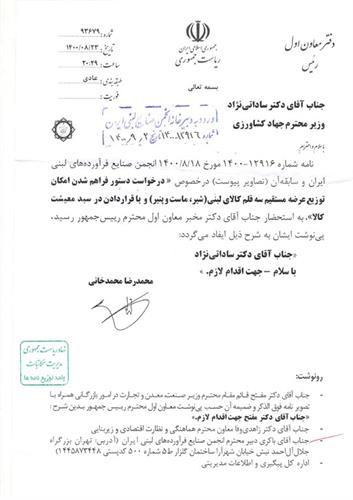 دفتر معاون اول
رئیس
جمهوری اسلامی ایران
ریاست جمهوری
شماره: ۹۳۶۷۹
تاریخ: ۱۴۰۰/۰۸/۲۳
ساعت: ۲۰:۲۹
طبقه‌بندی: عادی
فوریت:
بسمه تعالی
جناب آقای دکتر ساداتی‌نژاد
وزیر محترم جهاد کشاورزی
با سلام و احترام
نامه شماره ۱۲۹۱۶-۱۴۰۰ مورخ ۱۴۰۰/۸/۱۸ انجمن صنایع فرآورده‌های لبنی
ایران و سابقه‌آن (تصاویر پیوست) درخصوص «درخواست دستور فراهم شدن امکان
توزیع عرضه مستقیم سه قلم کالای لبنی (شیر، ماست و پنیر) و با قراردادن در سبد معیشت
کالا»، به استحضار جناب آقای دکتر مخبر معاون اول محترم رییس‌جمهور رسید،
پی‌نوشت ایشان به شرح ذیل ایفاد می‌گردد:
«جناب آقای دکتر ساداتی‌نژاد
با سلام – جهت اقدام لازم.»
محمدرضا محمدخانی
نهاد ریاست جمهوری
مدیریت مکاتبات
واحد توزیع نامه ها
رونوشت:
- جناب آقای دکتر مفتح قائم مقام محترم وزیر صنعت، معدن و تجارت در امور بازرگانی همراه با
تصویر نامه فوق الذکر و ضمیمه آن حسب پی‌نوشت معاون اول محترم رییس جمهور بدین شرح:
«جناب آقای دکتر مفتح جهت اقدام لازم.»
- جناب آقای دکتر زاهدی‌وفا معاون محترم هماهنگی و نظارت اقتصادی و زیربنایی
- جناب آقای باکری دبیر محترم انجمن صنایع فرآورده‌های لبنی ایران (آدرس: تهران بزرگراه
جلال آل‌احمد نبش خیابان شهرآرا ساختمان گلزار ط۵ شماره ۵۰۰ کدپستی ۱۴۴۵۸۷۳۴۴۸)
- اداره کل پیگیری و اطلاعات مدیریتی